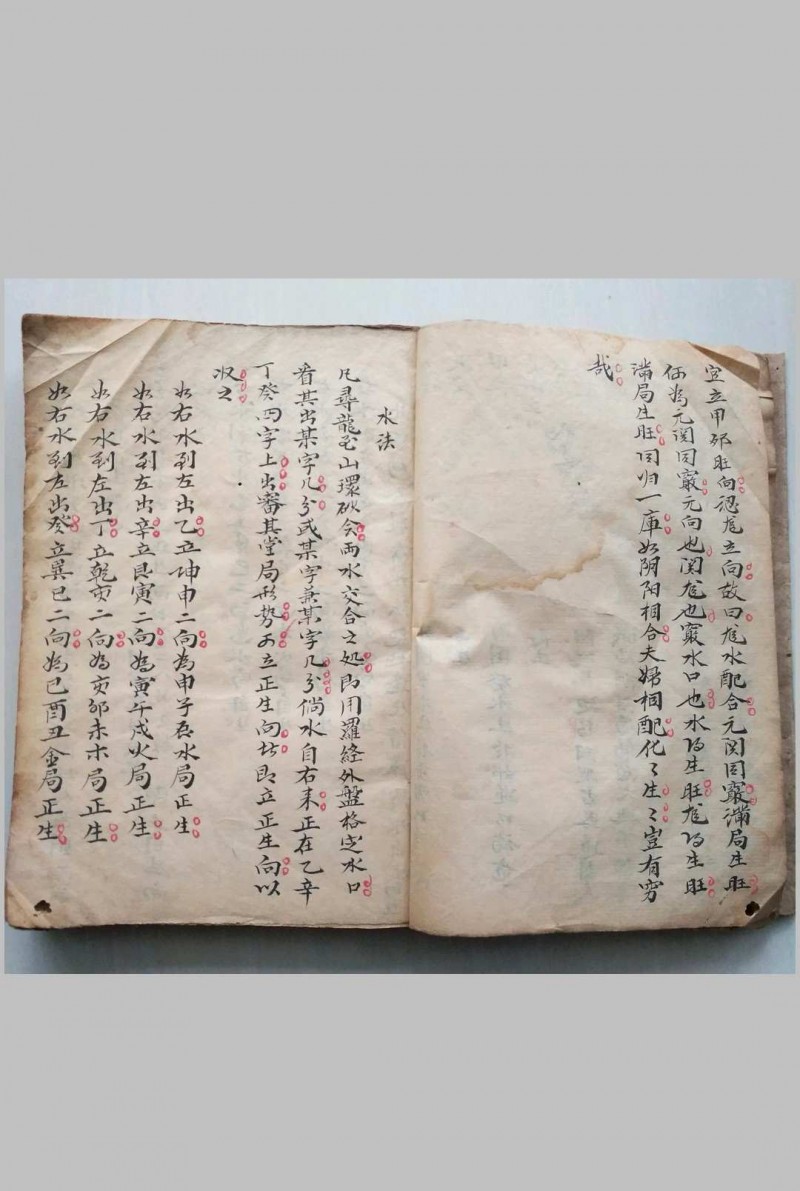 宜立甲卯旺向認龙立向故曰龙水配合元関同竅滿局生旺
何為元関同竅元向也関龙也竅水口也水得生旺龙得生旺
滿局生旺同归一庫如阴阳相合夫婦相配化〻生〻豈有穷
哉
水法
凡尋龍至山環砂会両水交合之処即用羅経外盤格定水口
看其出某字几分或某字兼某字几分倘水自右来正在乙辛
丁癸四字上出審其堂局形势可立正生向者即立正生向以
収之
如右水到左出乙立坤申二向為申子辰水局正生
如右水到左出辛立艮寅二向為寅午戌火局正生
如右水到左出丁立乾亥二向為亥卯未木局正生
如右水到左出癸立巽巳二向為巳酉丑金局正生